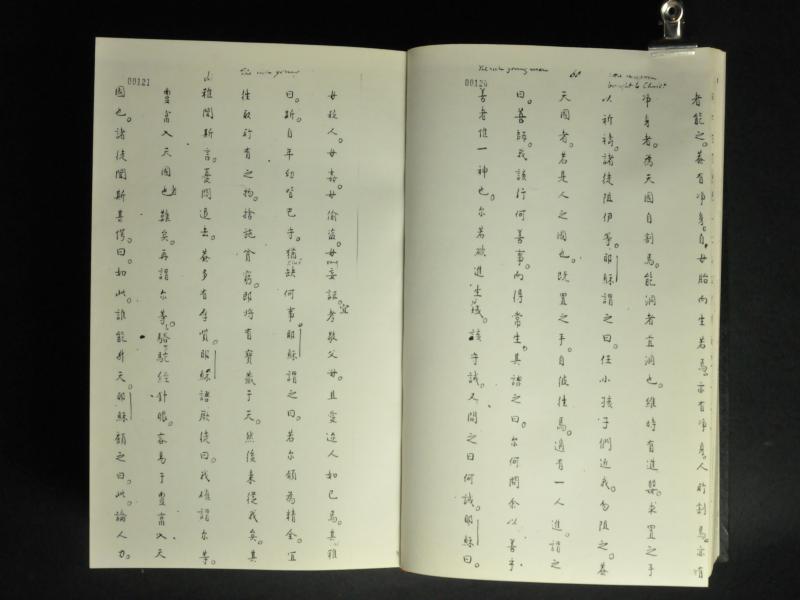 The rich young man
60
brought to Christ
00120
者能之。蓋有净身。自母胎而生若焉。亦有净身。人所割焉。亦有
净身者。為天國自割焉。能洞者宜洞也。維時有進嬰。求置之手
以祈禱。諸徒阻伊等。耶穌謂之曰。任小孩子們近我。勿阻之。蓋
天國者。若是人之國也。既置之手。自彼徃焉。適有一人進。謂之
曰。善師。我該行何善事。而得常生。其謂之曰。尔何問余以善乎
善者惟一神也。尔若欲進生。該守誡。又問之曰何誡。耶穌曰。
The rich young
00121
毋殺人。毋姦。毋偷盗。毋妄証。孝敬父母。且愛近人如己焉。其雅
曰。斯自年幼皆已守。猶缺何事。耶穌謂之曰。若尔願為精全。宜
徃取所有之物。捨施貧窮。即将有寶藏于天。然後来從我矣。其
雅聞斯言。憂悶退去。蓋多有産質。耶穌謂厥徒曰。我確謂尔等。
豊富入天國也難矣。再謂尔等。駱駝經針眼。容易于豊富入天
國也。諸徒聞斯甚愕。曰。如此誰能升天。耶穌顧之曰。此論人力。